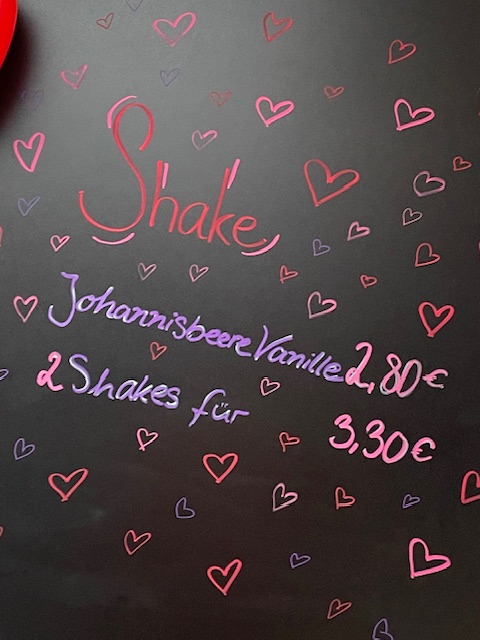 Shake
Johannisbeere Vanille 2,80€
2 Shakes für 3,30€